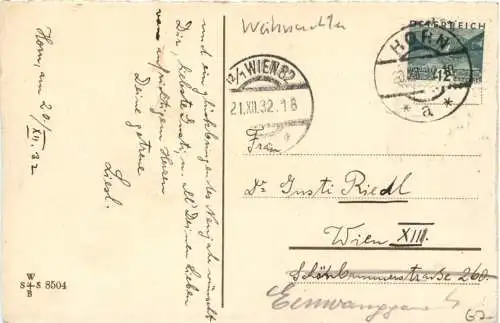 und ein glückbringendes Neujahr wünscht
Dir, liebste Gusti, u. all Deinen Lieben
von aufrichtigem Herzen
Deine getreue
Liesl.
Horn, am 20/
XII. 32
W
S+S 8504
B
Weihnachten
12/1 WIEN 82
21.XII.32.18
ÖSTERREICH
12
HORN
* a *
Frau
Dr Gusti Riedl
Wien XIII.
Schönbrunnerstraße 260
67-